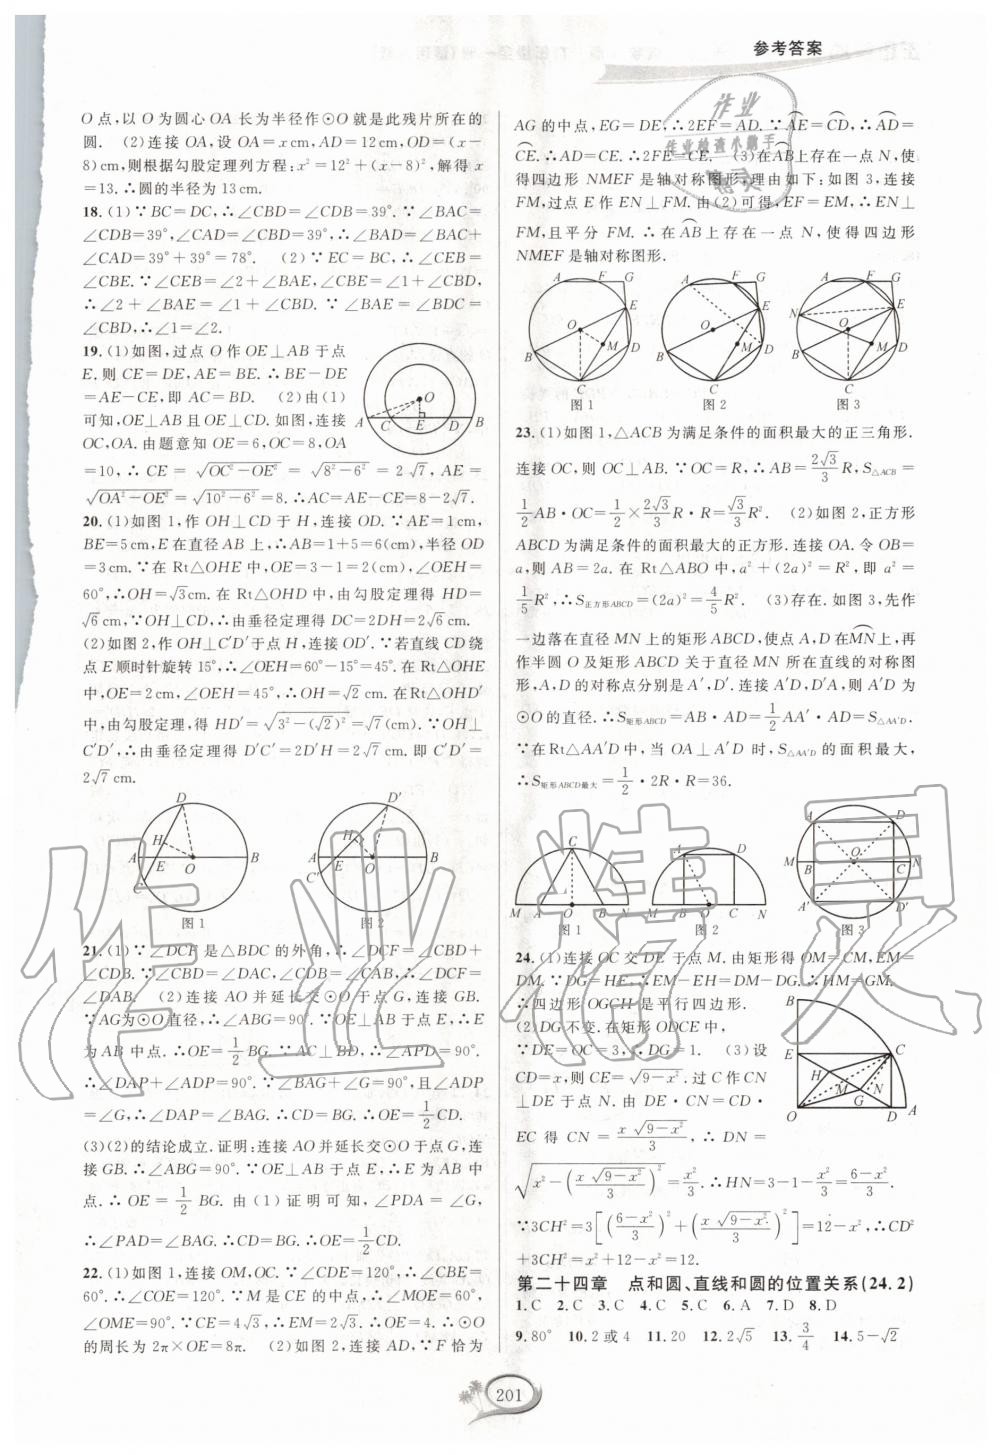 参考答案
O点，以O为圆心OA长为半径作⊙O就是此残片所在的
圆. (2)连接OA，设OA=x cm，AD=12cm，OD=(x-
8)cm，则根据勾股定理列方程：x²=12²+(x-8)²，解得x
=13.∴圆的半径为13cm.
18.(1)∵BC=DC，∴∠CBD=∠CDB=39°.∵∠BAC=
∠CDB=39°，∠CAD=∠CBD=39°，∴∠BAD=∠BAC+
∠CAD=39°+39°=78°. (2)∵EC=BC，∴∠CEB=
∠CBE.∵∠CEB=∠2+∠BAE，∠CBE=∠1+∠CBD，
∴∠2+∠BAE=∠1+∠CBD.∵∠BAE=∠BDC=
∠CBD，∴∠1=∠2.
19.(1)如图，过点O作OE⊥AB于点
E.则CE=DE，AE=BE.∴BE-DE
=AE-CE，即AC=BD. (2)由(1)
可知，OE⊥AB且OE⊥CD.如图，连接
OC，OA.由题意知OE=6，OC=8，OA
=10，∴CE=√(OC²-OE²)=√(8²-6²)=2√7，AE=
√(OA²-OE²)=√(10²-6²)=8.∴AC=AE-CE=8-2√7.
O
A C E D B
20.(1)如图1，作OH⊥CD于H，连接OD.∵AE=1cm，
BE=5cm，E在直径AB上，∴AB=1+5=6(cm)，半径OD
=3cm.∵在Rt△OHE中，OE=3-1=2(cm)，∠OEH=
60°，∴OH=√3cm.在Rt△OHD中，由勾股定理得HD=
√6cm，∵OH⊥CD，∴由垂径定理得DC=2DH=2√6cm.
(2)如图2，作OH⊥C′D′于点H，连接OD′.∵若直线CD绕
点E顺时针旋转15°，∴∠OEH=60°-15°=45°.在Rt△OEH
中，OE=2cm，∠OEH=45°，∴OH=√2cm.在Rt△OHD′
中，由勾股定理，得HD′=√(3²-(√2)²)=√7(cm).∵OH⊥
C′D′，∴由垂径定理得D′C′=2D′H=2√7cm.即C′D′=
2√7cm.
D
H
A E O B
C
图1
D′
H
A E O B
C′
图2
21.(1)∵∠DCF是△BDC的外角，∴∠DCF=∠CBD+
∠CDB.∵∠CBD=∠DAC，∠CDB=∠CAB，∴∠DCF=
∠DAB. (2)连接AO并延长交⊙O于点G，连接GB.
∵AG为⊙O直径，∴∠ABG=90°.∵OE⊥AB于点E，∴E
为AB中点.∴OE=1/2BG.∵AC⊥BD，∴∠APD=90°.
∴∠DAP+∠ADP=90°.∵∠BAG+∠G=90°，且∠ADP
=∠G，∴∠DAP=∠BAG.∴CD=BG.∴OE=1/2CD.
(3)(2)的结论成立.证明：连接AO并延长交⊙O于点G，连
接GB.∴∠ABG=90°.∵OE⊥AB于点E，∴E为AB中
点.∴OE=1/2BG.由(1)证明可知，∠PDA=∠G，
∴∠PAD=∠BAG.∴CD=BG.∴OE=1/2CD.
22.(1)如图1，连接OM，OC.∵∠CDE=120°，∴∠CBE=
60°，∴∠COE=120°.∵M是CE的中点，∴∠MOE=60°，
∠OME=90°.∵CE=4√3，∴EM=2√3.∴OE=4.∴⊙O
的周长为2π×OE=8π. (2)如图2，连接AD，∵F恰为
AG的中点，EG=DE，∴2EF=AD.∵AE=CD，∴AD=
CE.∴AD=CE.∴2FE=CE. (3)在AB上存在一点N，使
得四边形NMEF是轴对称图形，理由如下：如图3，连接
FM，过点E作EN⊥FM.由(2)可得，EF=EM，∴EN⊥
FM，且平分FM.∴在AB上存在一点N，使得四边形
NMEF是轴对称图形.
A F G
E
O
M D
B
C
图1
A F G
E
O
M D
B
C
图2
A F G
N E
O
M D
B
C
图3
23.(1)如图1，△ACB为满足条件的面积最大的正三角形.
连接OC，则OC⊥AB.∵OC=R，∴AB=2√3/3R，S△ACB=
1/2AB·OC=1/2×2√3/3R·R=√3/3R². (2)如图2，正方形
ABCD为满足条件的面积最大的正方形.连接OA.令OB=
a，则AB=2a.在Rt△ABO中，a²+(2a)²=R²，即a²=
1/5R²，∴S正方形ABCD=(2a)²=4/5R². (3)存在.如图3，先作
一边落在直径MN上的矩形ABCD，使点A，D在MN上，再
作半圆O及矩形ABCD关于直径MN所在直线的对称图
形，A，D的对称点分别是A′，D′.连接A′D，D′A，则A′D为
⊙O的直径.∴S矩形ABCD=AB·AD=1/2AA′·AD=S△AA′D.
∵在Rt△AA′D中，当OA⊥A′D时，S△AA′D的面积最大，
∴S矩形ABCD最大=1/2·2R·R=36.
C
M A O B N
图1
A D
M B O C N
图2
A D
M B O C N
A′ D′
图3
24.(1)连接OC交DE于点M.由矩形得OM=CM，EM=
DM.∵DG=HE，∴EM-EH=DM-DG.∴HM=GM.
∴四边形OGCH是平行四边形.
(2)DG不变.在矩形ODCE中，
∵DE=OC=3，∴DG=1. (3)设
CD=x，则CE=√(9-x²).过C作CN
⊥DE于点N.由DE·CN=CD·
EC得CN=x√(9-x²)/3，∴DN=
√(x²-(x√(9-x²)/3)²)=x²/3.∴HN=3-1-x²/3=(6-x²)/3.
∵3CH²=3[((6-x²)/3)²+(x√(9-x²)/3)²]=12-x²，∴CD²
+3CH²=x²+12-x²=12.
B
E C
H M N
G
O D A
第二十四章 点和圆、直线和圆的位置关系(24.2)
1.C 2.C 3.C 4.C 5.C 6.A 7.D 8.D
9.80° 10.2或4 11.20 12.2√5 13.3/4 14.5-√2
201
作业
作业检查小助手
作业精灵